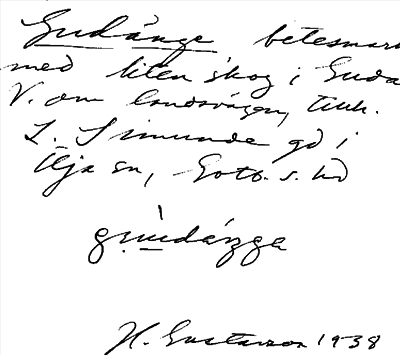 Gudänge betesmar
med liten skog i Guda
V. om landsvägen, tillh.
L. Simunde gd i
Öja sn, Gotl. s. hd
H. Gustavson 1938